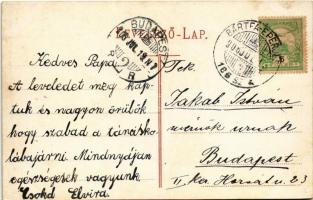 LEVELEZŐ-LAP.
BUDAPEST
BÁRTFA-EPER
Kedves Papa!
A leveledet meg kap-
tuk és nagyon örülök
hogy szabad a tánisko-
lába járni. Mindnyájan
egészségesek vagyunk
Csokol Elvira.
Tek.
Jakab István
mérnök urnak
Budapest
II. ker Horvát u. 23